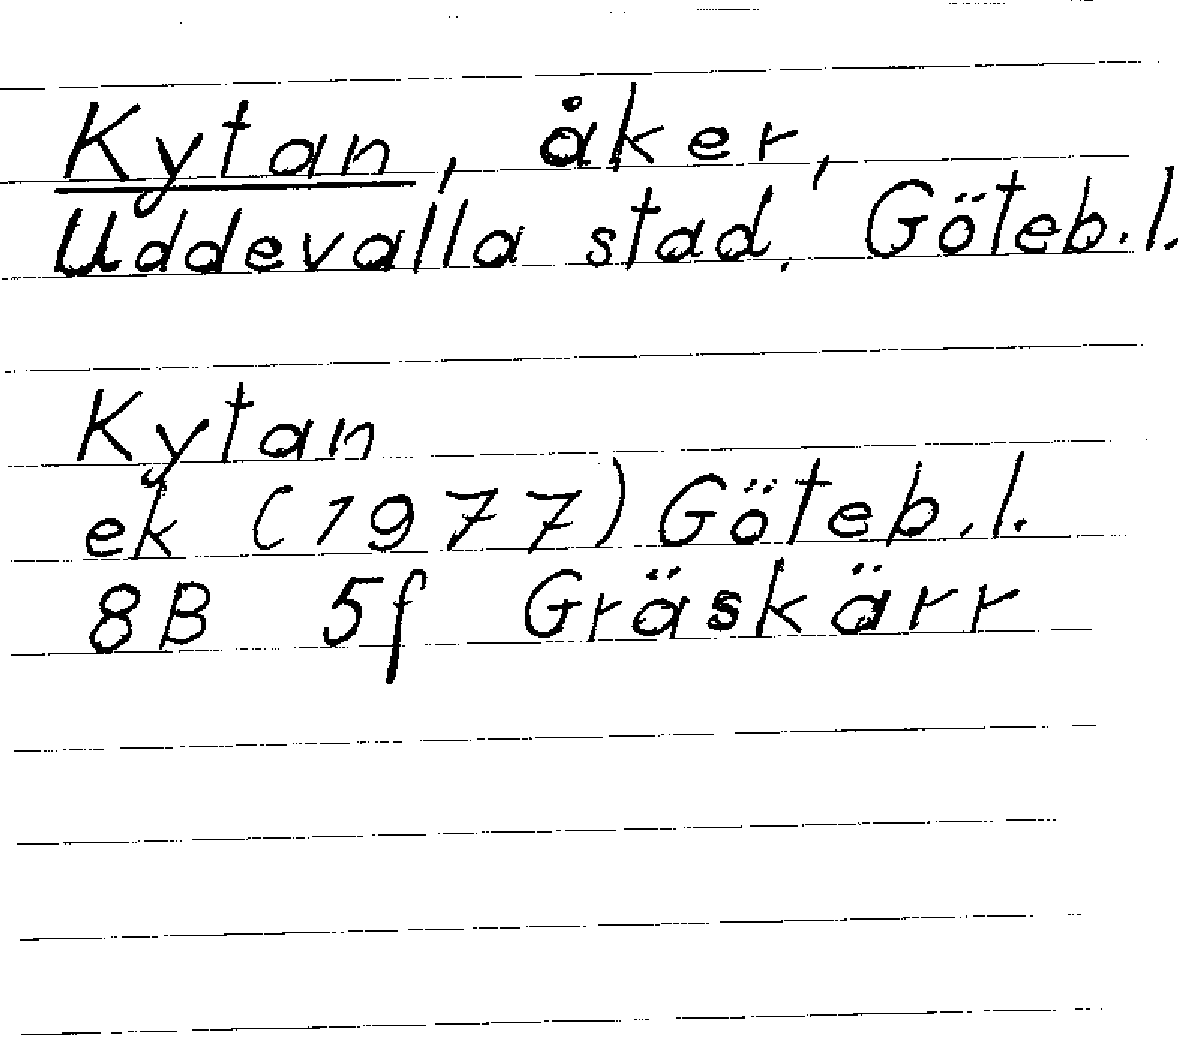 Kytan, åker,
Uddevalla stad. Göteb.l.
Kytan
ek (1977) Göteb.l.
8B 5f Gräskärr